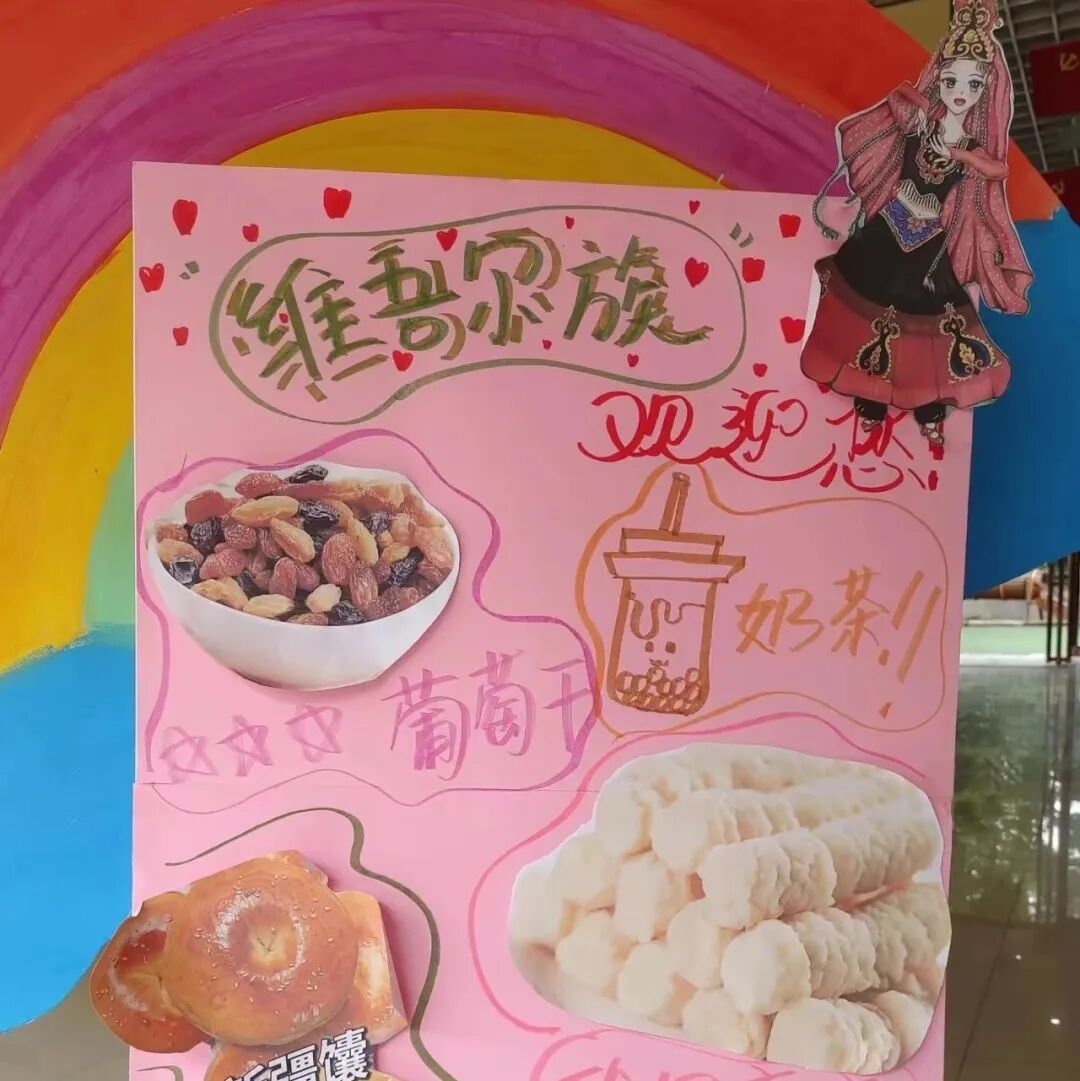 维吾尔族
欢迎您!
奶茶!!
葡萄干
新疆馕